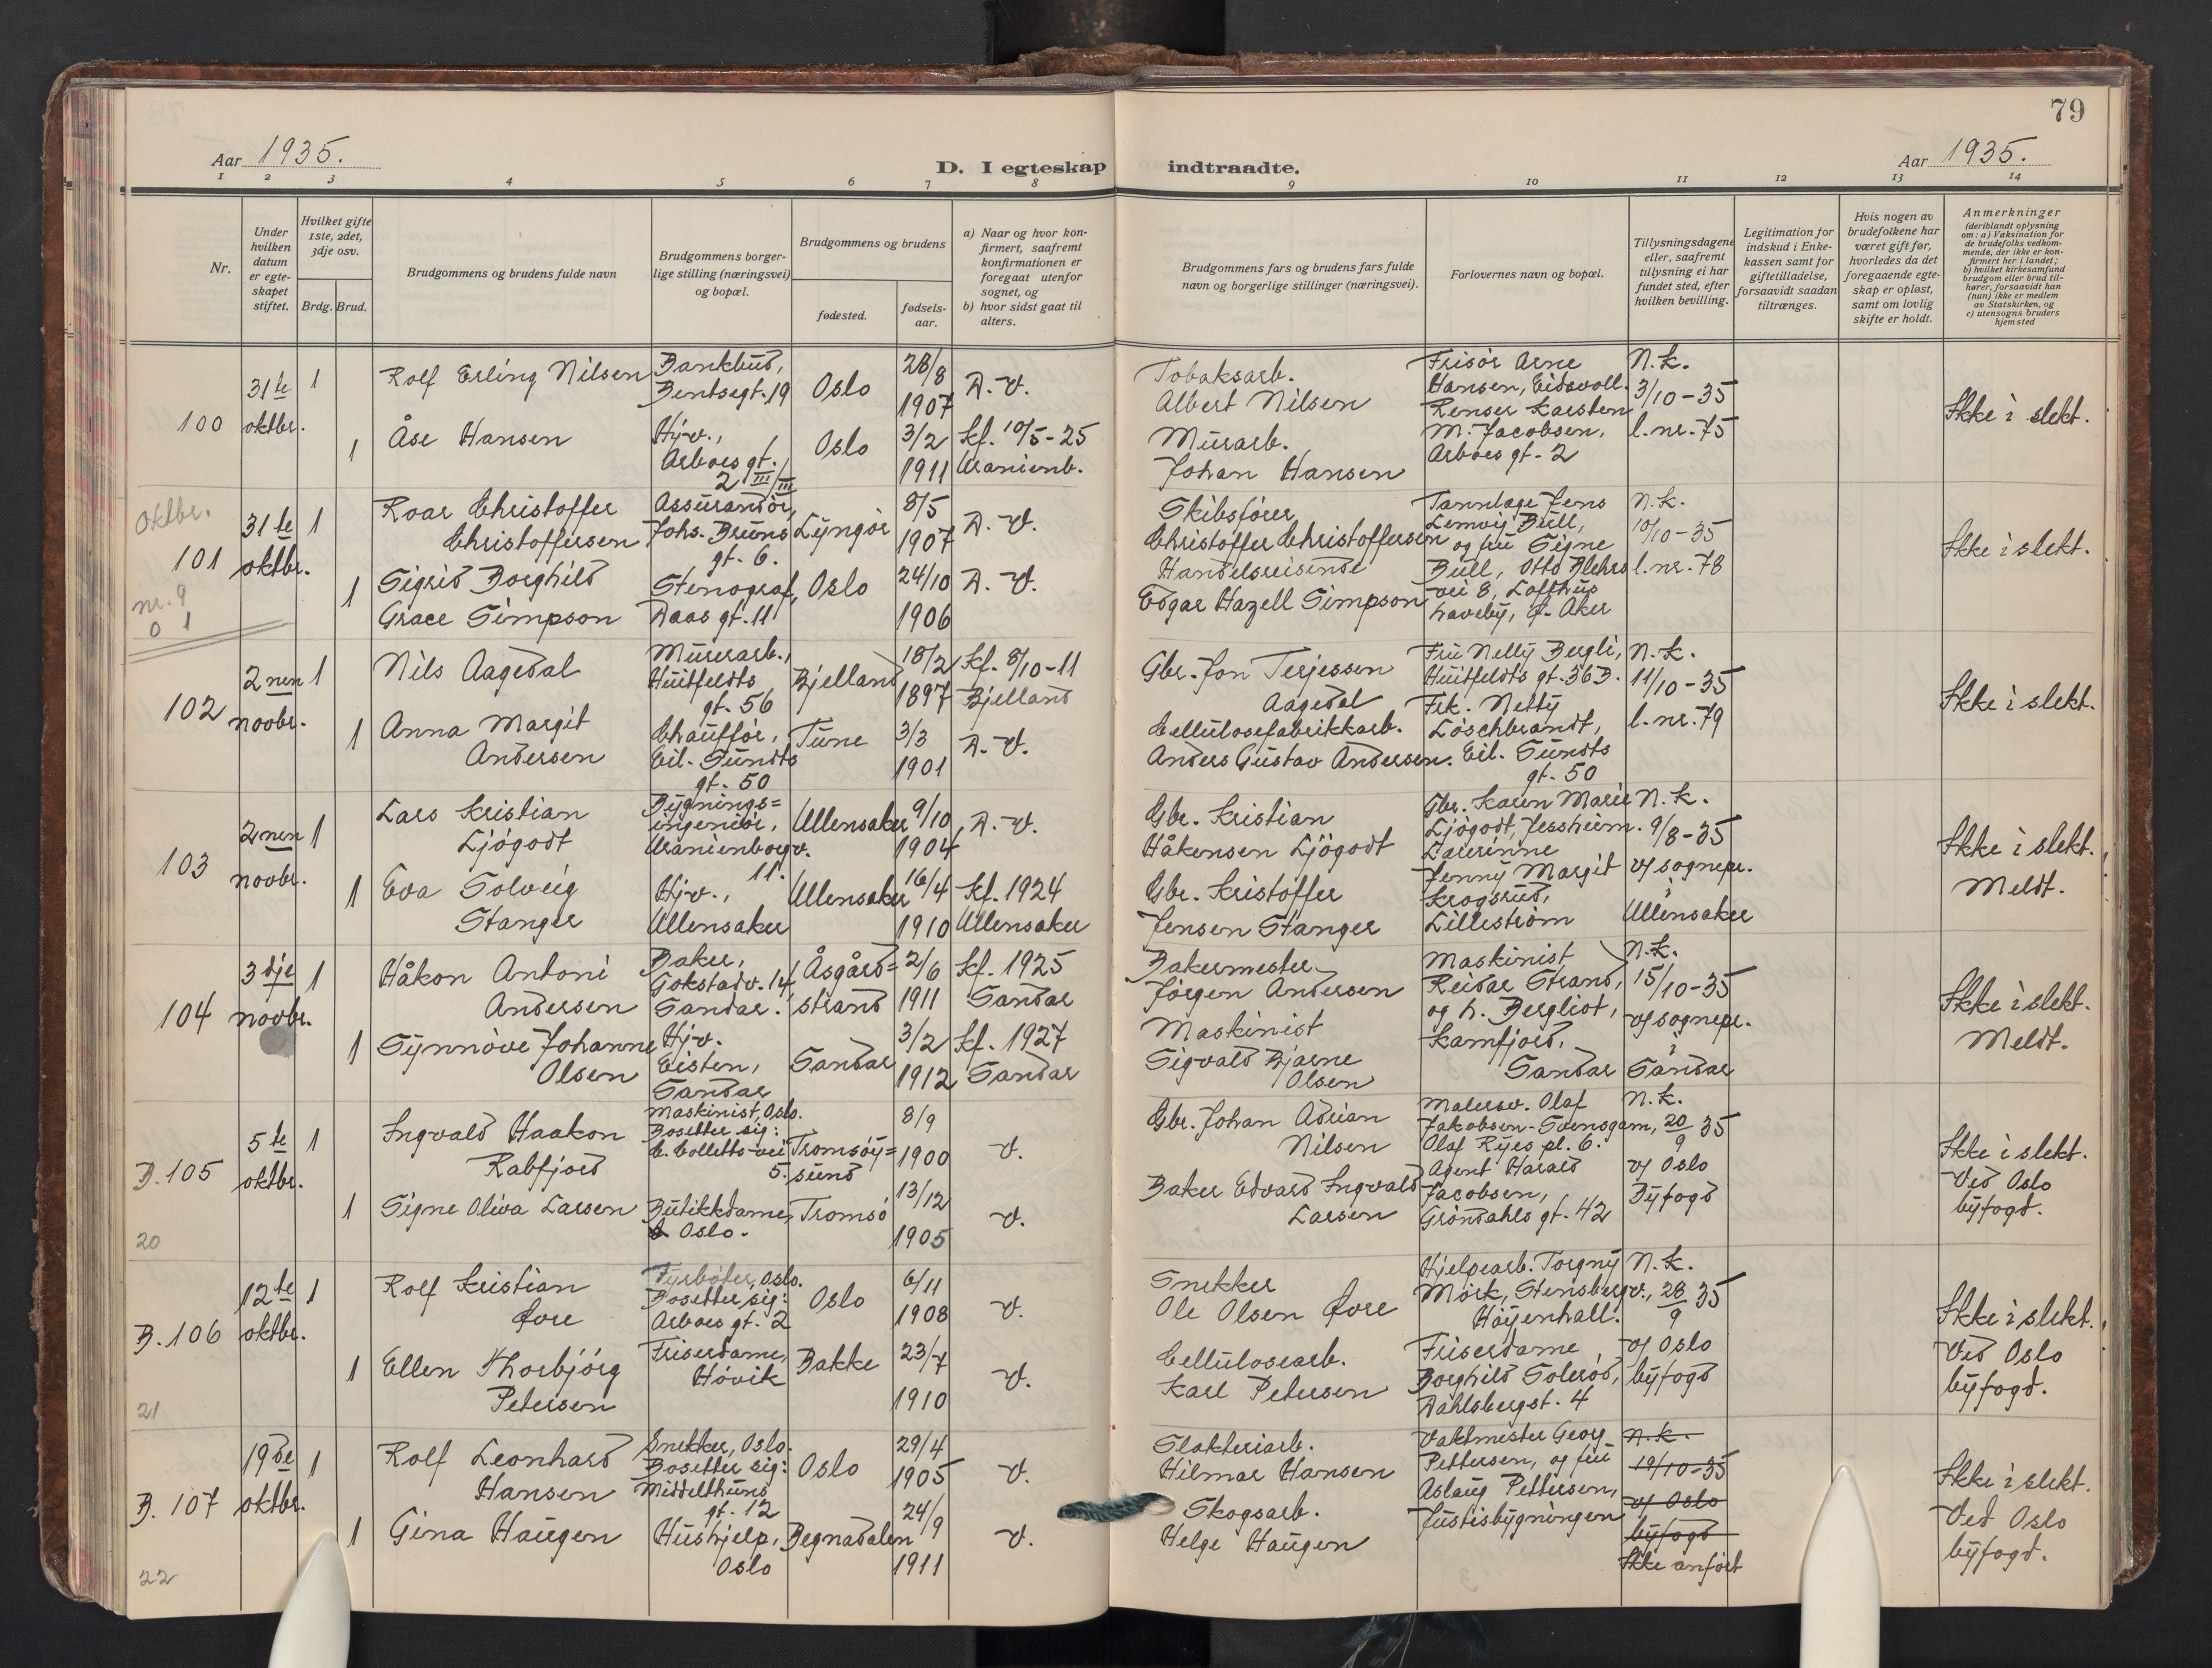 79
Aar 1935.
D. I egteskap indtraadte.
Aar 1935.
1 2 3 4 5 6 7 8 9 10 11 12 13 14
Nr.
Under hvilken datum er egte-skapet stiftet.
Hvilket gifte 1ste, 2det, 3dje osv.
Brdg. Brud.
Brudgommens og brudens fulde navn
Brudgommens borger-lige stilling (næringsvei) og bopæl.
Brudgommens og brudens
fødested.
fødsels-aar.
a) Naar og hvor kon-firmert, saafremt konfirmationen er foregaat utenfor sognet, og
b) hvor sidst gaat til alters.
Brudgommens fars og brudens fars fulde navn og borgerlige stillinger (næringsvei).
Forlovernes navn og bopæl.
Tillysningsdagene eller, saafremt tillysning ei har fundet sted, efter hvilken bevilling.
Legitimation for indskud i Enke-kassen samt for giftetilladelse, forsaavidt saadan tiltrænges.
Hvis nogen av brudefolkene har været gift før, hvorledes da det foregaaende egte-skap er opløst, samt om lovlig skifte er holdt.
Anmerkninger (deriblandt oplysning om: a) Vaksination for de brudefolks vedkom-mende, der ikke er kon-firmert her i landet; b) hvilket kirkesamfund brudgom eller brud til-hører, forsaavidt han (hun) ikke er medlem av Statskirken, og c) utensogns bruders hjemsted
100
31te oktbr.
1
Rolf Erling Nilsen
Bankbud, Bentsegt. 19
Oslo
28/8 1907
D. V.
Tobaksarb. Albert Nilsen
Frisör Arne Hansen, Eidsvoll.
Renser Karsten M. Jacobsen, Arboes gt. 2
N.k. 3/10-35 l.nr. 75
Ikke i slekt.
1
Åse Hansen
Hjv., Arboes gt. 2 III/III
Oslo
3/2 1911
Kf. 10/5-25 Uranienb.
Murarb. Johan Hansen
oktbr.
101
nr. 9
0 1
31te oktbr.
1
Roar Christoffer Christoffersen
Assurandör, Johs. Bruns gt. 6.
Lyngör
8/5 1907
D. V.
Skibsfører Christoffer Christoffersen
Tannlæge Jens Lemvig Bull, og fru Signe Bull, Otto Blehrs vei 8, Lofthus haveby, Ø. Aker
N.k. 10/10-35 l.nr. 78
Ikke i slekt.
1
Sigrid Borghild Grace Simpson
Stenograf, Daas gt. 11
Oslo
24/10 1906
D. V.
Handelsreisende Edgar Hazell Simpson
102
2nen novbr.
1
Nils Aagedal
Murerarb., Huitfeldts gt. 56
Bjelland
18/2 1897
Kf. 8/10-11 Bjelland
Gbr. Jon Terjessen Aagedal
Fru Nelly Bergli, Huitfeldts gt. 36 B.
Frk. Netty Löschbrandt, Eil. Sundts gt. 50
N.k. 11/10-35 l.nr. 79
Ikke i slekt.
1
Anna Margit Andersen
Chauffør, Eil. Sundts gt. 50
Tune
3/3 1901
D. V.
Cellulosefabrikkarb. Anders Gustav Andersen.
103
2nen novbr.
1
Lars Kristian Ljögodt
Bygnings=ingeniör, Uranienborgv. 11.
Ullensaker
9/10 1904
D. V.
Gbr. Kristian Håkensen Ljögodt
Gbr. Karen Marie Ljögodt, Jessheim.
Lærerinne Jenny Margit Krogsrud, Lilleström
N.k. 9/8-35 v/ sognepr. i Ullensaker
Ikke i slekt. Meldt.
1
Eva Solveig Stanger
Hjv., Ullensaker
Ullensaker
16/4 1910
Kf. 1924 Ullensaker
Gbr. Kristoffer Jensen Stanger
104
3dje novbr.
1
Håkon Antoni Andersen
Baker, Gokstadv. 14, Sandar.
Åsgård=strand
2/6 1911
Kf. 1925 Sandar
Bakermester Jörgen Andersen
Maskinist Reidar Strand, og h. Bergliot, Kamfjord, Sandar
N.k. 15/10-35 v/ sognepr. i Sandar
Ikke i slekt. Meldt.
1
Synnöve Johanne Olsen
Hjv. Eisten, Sandar
Sandar
3/2 1912
Kf. 1927 Sandar
Maskinist Sigvald Bjarne Olsen
B. 105
20
5te oktbr.
1
Ingvald Haakon Rabfjord
Maskinist, Oslo. Bosetter sig: C. Colletts-vei 5.
Tromsöy=sund
8/9 1900
V.
Gbr. Johan Adrian Nilsen
Malersv. Olaf Jakobsen-Svensgam, Olaf Ryes pl. 6.
Agent Harald Jacobsen, Gröndahls gt. 42
N.k. 20/9 35 v/ Oslo Byfogd
Ikke i slekt. Ved Oslo byfogd.
1
Signe Oliva Larsen
Butikkdame, Oslo.
Tromsö
13/12 1905
V.
Baker Edvard Ingvald Larsen
B. 106
21
12te oktbr.
1
Rolf Kristian Øore
Fyrböter, Oslo. Bosetter sig: Arboes gt. 2
Oslo
6/11 1908
V.
Snekker Ole Olsen Øore
Hjelpearb. Torgny Mörk, Stensbergv., Höyenhall.
Friserdame Borghild Soleröd, Dahlsbergst. 4
N.k. 28/9 35 v/ Oslo byfogd
Ikke i slekt. Ved Oslo byfogd.
1
Ellen Thorbjörg Petersen
Friserdame, Hövik
Bakke
23/7 1910
V.
Cellulosearb. Karl Petersen
B. 107
22
19de oktbr.
1
Rolf Leonhard Hansen
Snekker, Oslo. Bosetter sig: Middelthuns gt. 12
Oslo
29/4 1905
V.
Slakteriarb. Hilmar Hansen
Vaktmester Georg Pettersen, og fru Aslaug Pettersen, Justisbygningen
N.k. 19/10-35 v/ Oslo byfogd
Ikke anfört
Ikke i slekt. Ved Oslo byfogd.
1
Gina Haugen
Hushjelp, Oslo
Begnadalen
24/9 1911
V.
Skogsarb. Helge Haugen